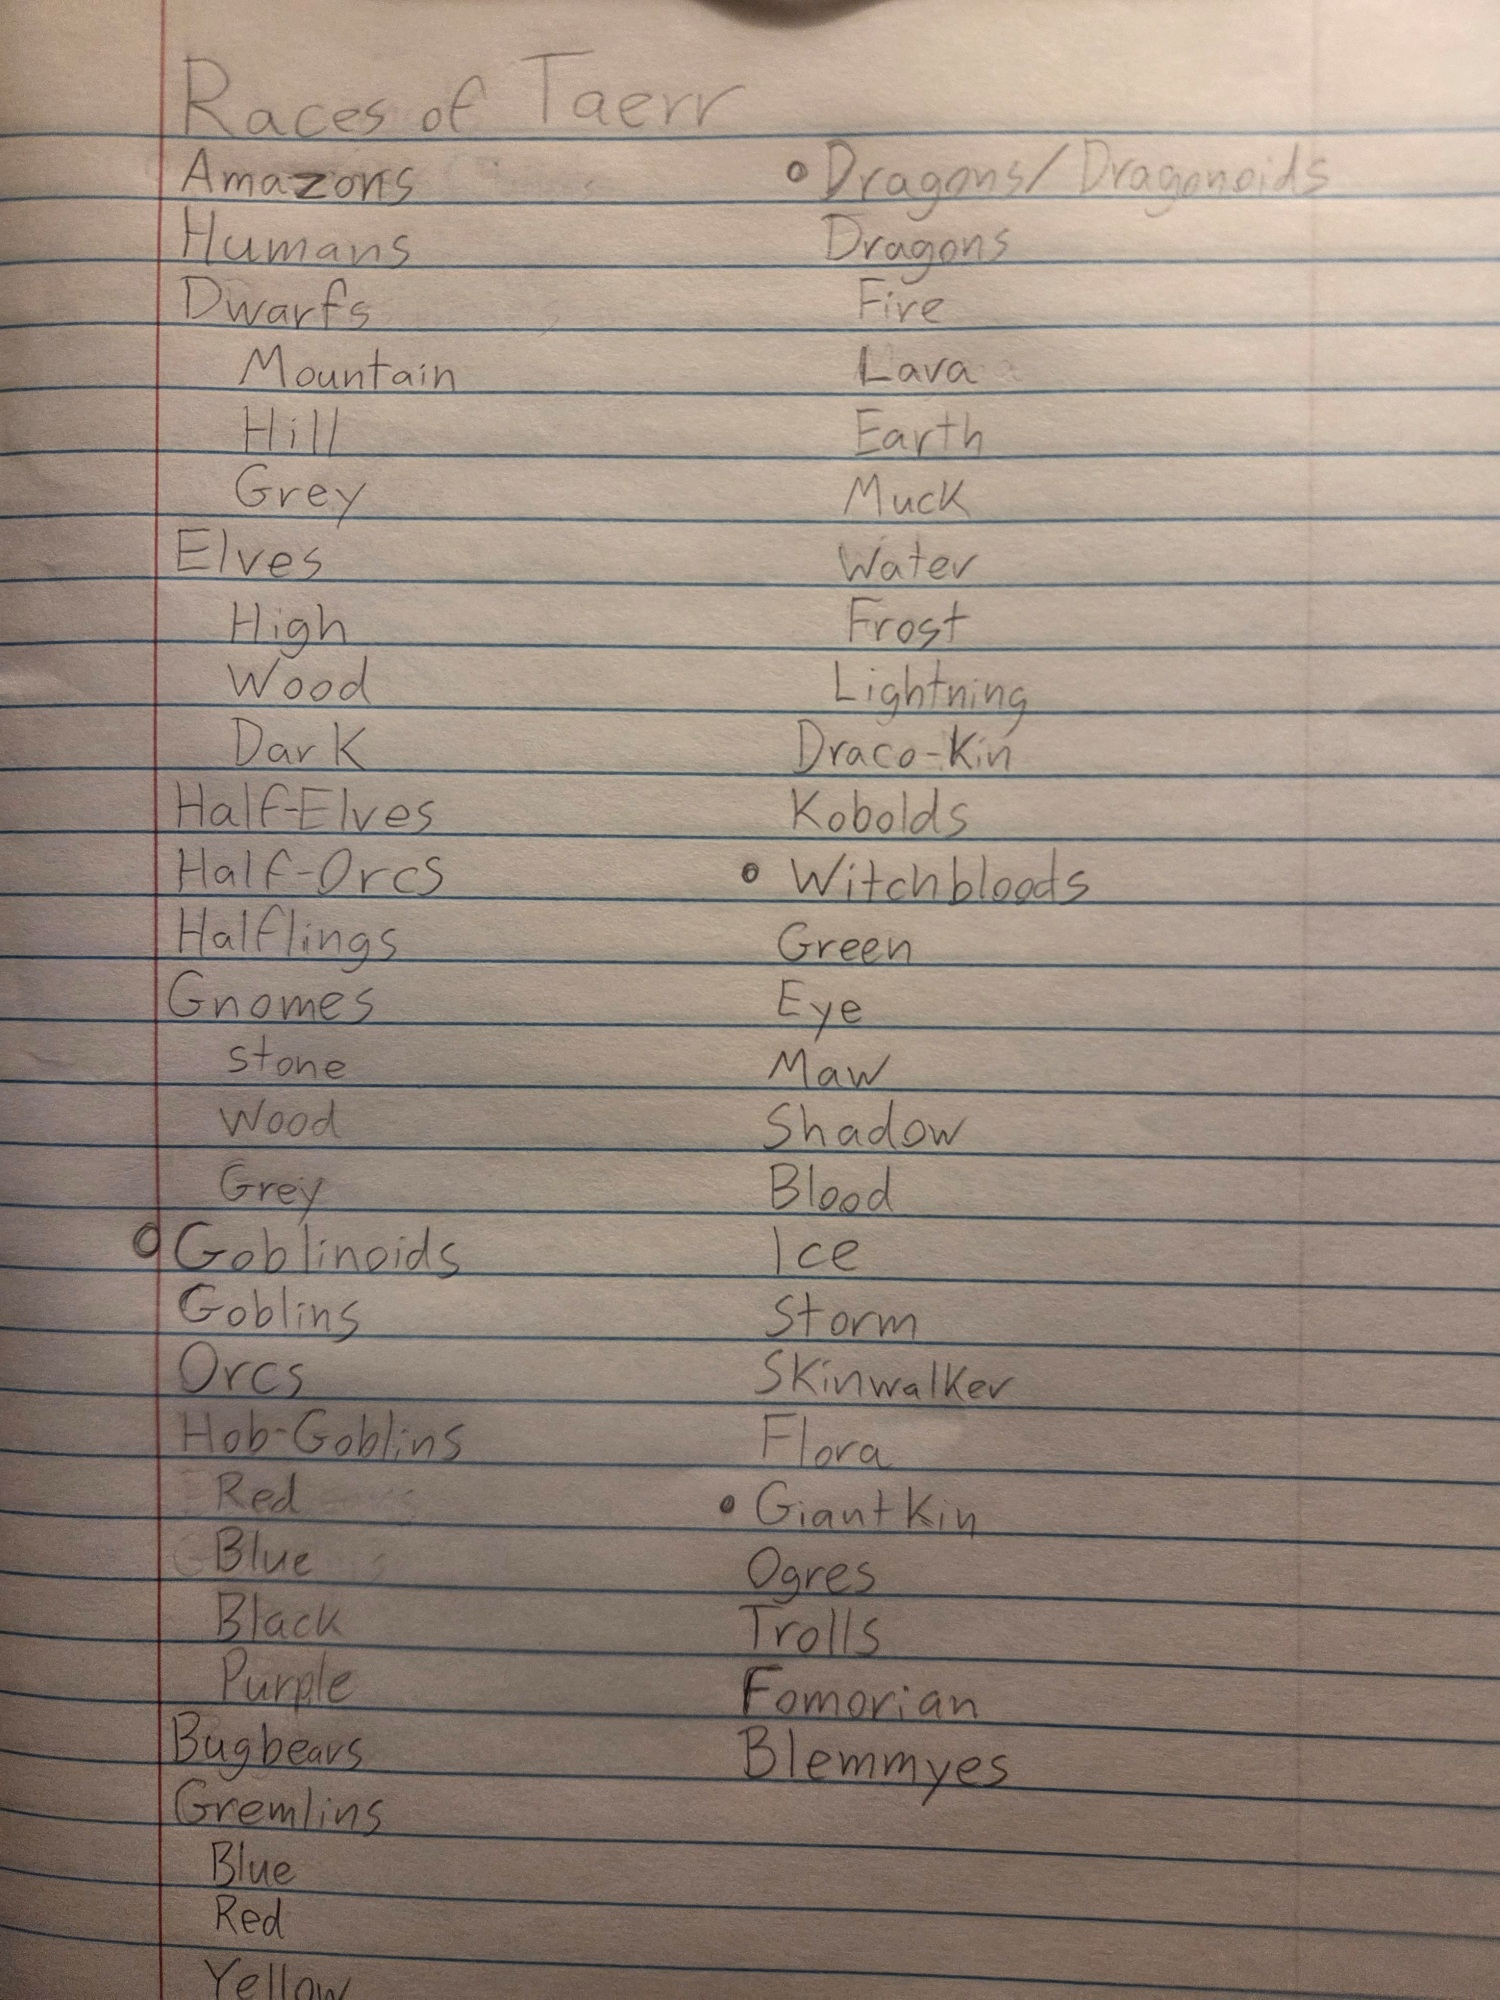 Races of Taerr
Amazons
Humans
Dwarfs
Mountain
Hill
Grey
Elves
High
Wood
Dark
Half-Elves
Half-Orcs
Halflings
Gnomes
stone
Wood
Grey
Goblinoids
Goblins
Orcs
Hob-Goblins
Red
Blue
Black
Purple
Bugbears
Gremlins
Blue
Red
Yellow
Dragons/Dragonoids
Dragons
Fire
Lava
Earth
Muck
Water
Frost
Lightning
Draco-Kin
Kobolds
Witchbloods
Green
Eye
Maw
Shadow
Blood
Ice
Storm
Skinwalker
Flora
Giant Kin
Ogres
Trolls
Fomorian
Blemmyes